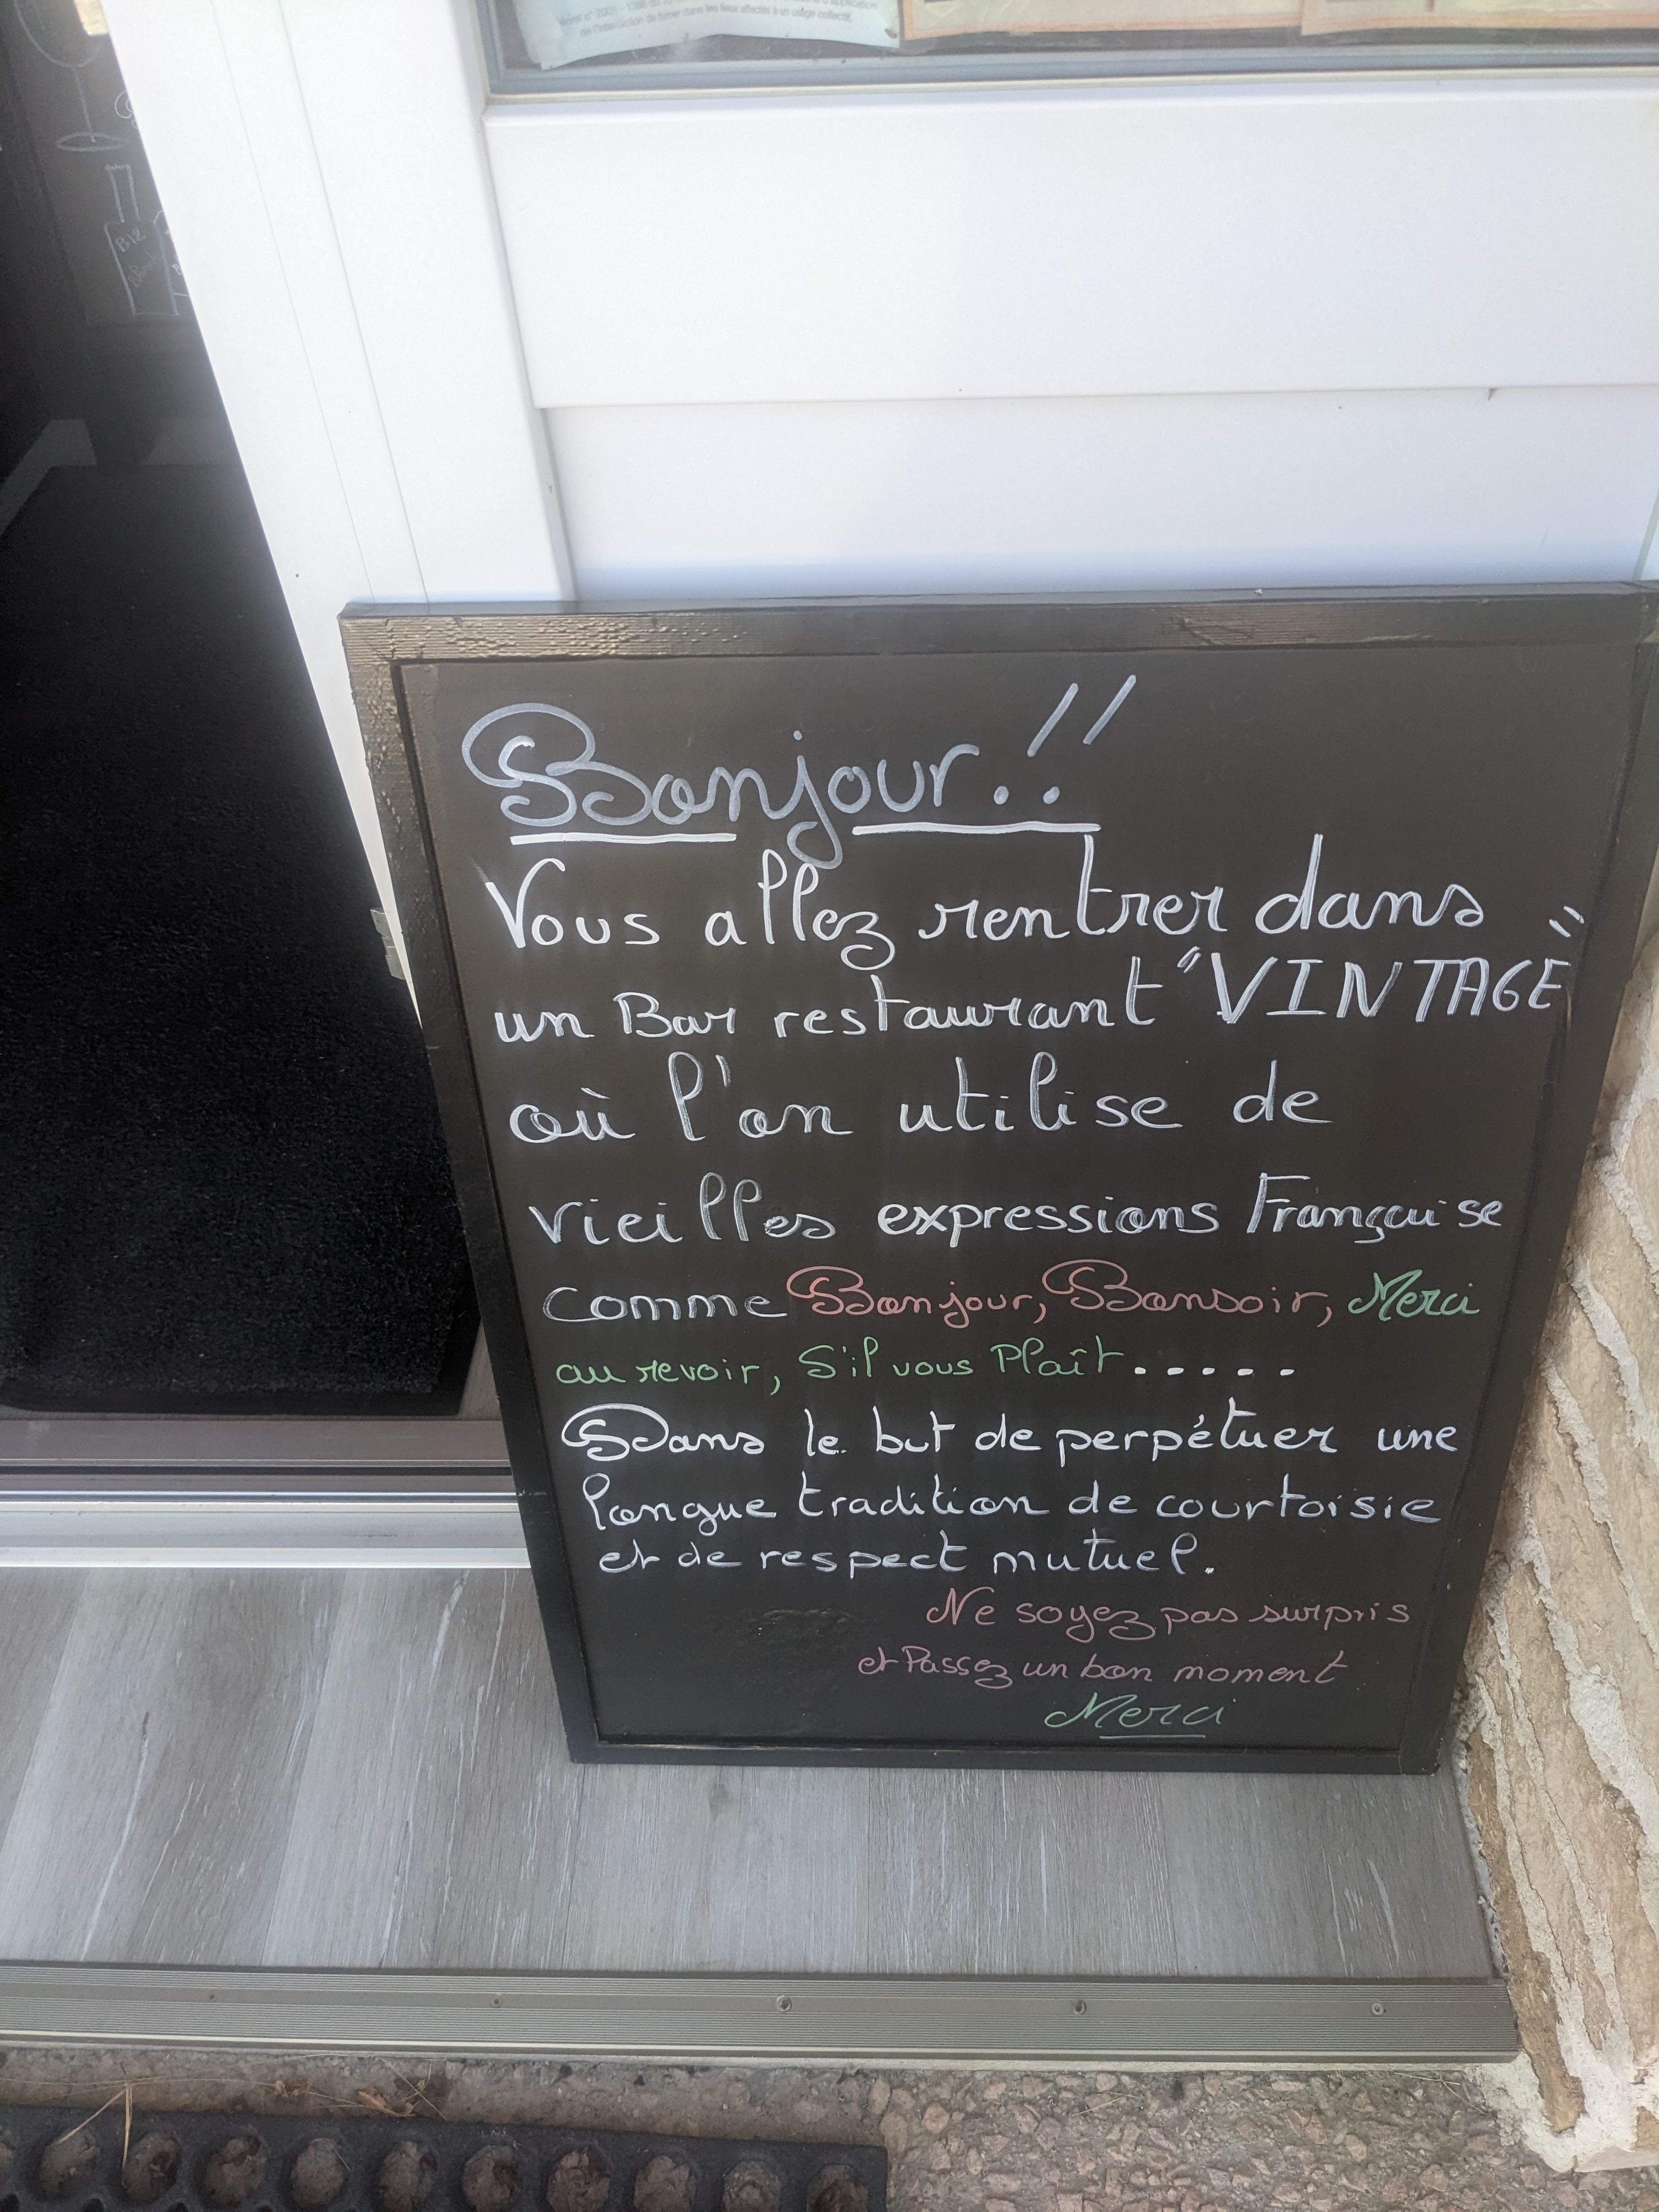 de l'interdiction de fumer dans les lieux affectés à un usage collectif.
B12
Bonjour.!!
Vous allez rentrer dans
un Bar restaurant "VINTAGE"
où l'on utilise de
vieilles expressions Française
comme Bonjour, Bonsoir, Merci
au revoir, S'il vous Plaît.....
Dans le but de perpétuer une
longue tradition de courtoisie
et de respect mutuel.
Ne soyez pas surpris
et Passez un bon moment
Merci